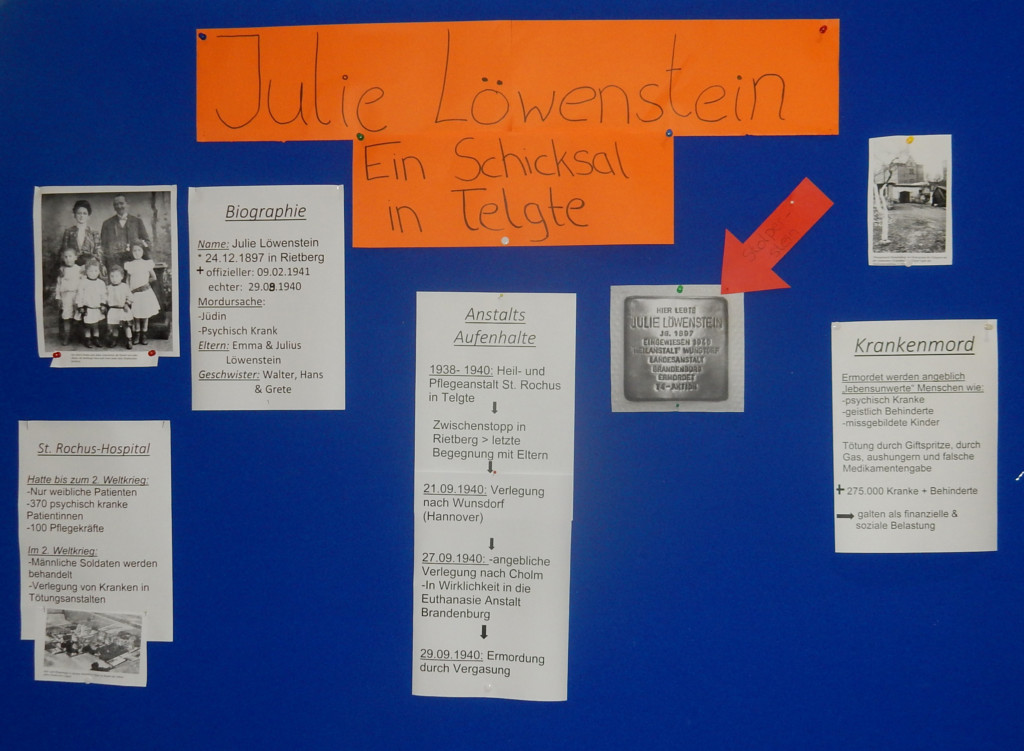 Julie Löwenstein
Ein Schicksal
in Telgte
Biographie
Name: Julie Löwenstein
* 24.12.1897 in Rietberg
+ offizieller: 09.02.1941
echter: 29.09.1940
Mordursache:
-Jüdin
-Psychisch Krank
Eltern: Emma & Julius
Löwenstein
Geschwister: Walter, Hans
& Grete
St. Rochus-Hospital
Hatte bis zum 2. Weltkrieg:
-Nur weibliche Patienten
-370 psychisch kranke
Patientinnen
-100 Pflegekräfte
Im 2. Weltkrieg:
-Männliche Soldaten werden
behandelt
-Verlegung von Kranken in
Tötungsanstalten
Anstalts
Aufenhalte
1938- 1940: Heil- und
Pflegeanstalt St. Rochus
in Telgte
Zwischenstopp in
Rietberg > letzte
Begegnung mit Eltern
21.09.1940: Verlegung
nach Wunsdorf
(Hannover)
27.09.1940: -angebliche
Verlegung nach Cholm
-In Wirklichkeit in die
Euthanasie Anstalt
Brandenburg
29.09.1940: Ermordung
durch Vergasung
HIER LEBTE
JULIE LÖWENSTEIN
JG. 1897
EINGEWIESEN
HEILANSTALT WUNSTORF
LANDESANSTALT
BRANDENBURG
ERMORDET
T4-AKTION
Krankenmord
Ermordet werden angeblich
„lebensunwerte“ Menschen wie:
-psychisch Kranke
-geistlich Behinderte
-missgebildete Kinder
Tötung durch Giftspritze, durch
Gas, aushungern und falsche
Medikamentengabe
+ 275.000 Kranke + Behinderte
galten als finanzielle &
soziale Belastung